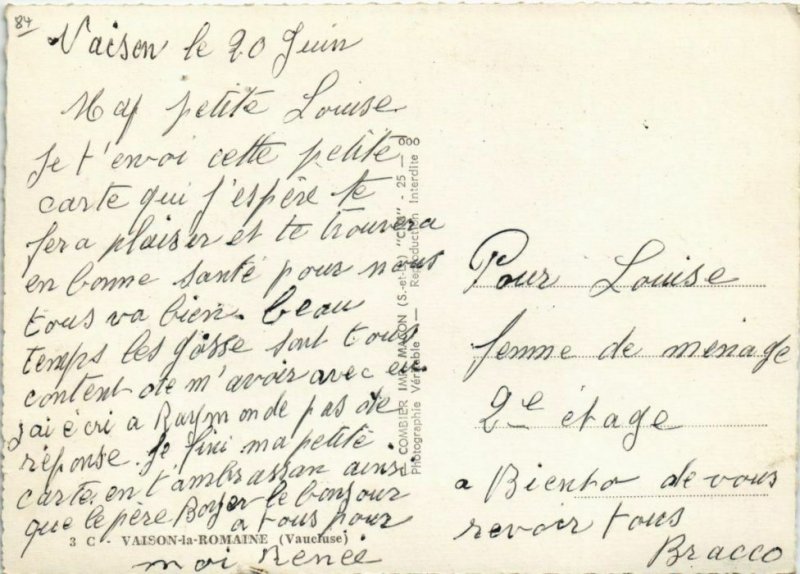 84
Vaison le 20 Juin
Ma petite Louise
Je t'envoi cette petite
carte qui j'espère te
fera plaisir et te trouvera
en bonne santé pour nous
tous va bien. beau
temps les gosse sont tous
content de m'avoir avec eux
j'ai écri a Raymonde pas de
réponse. Je fini ma petite
carte. en t'ambrassan ainsi
que le père Boyer le bonjour
a tous pour
moi Renée
3 C VAISON-la-ROMAINE (Vaucluse)
COMBIER IMP. MACON (S.-et-L.) "CIM" - 25 — 000
Photographie Véritable — Reproduction Interdite
Pour Louise
femme de ménage
2e étage
a Biento de vous
revoir tous
Bracco